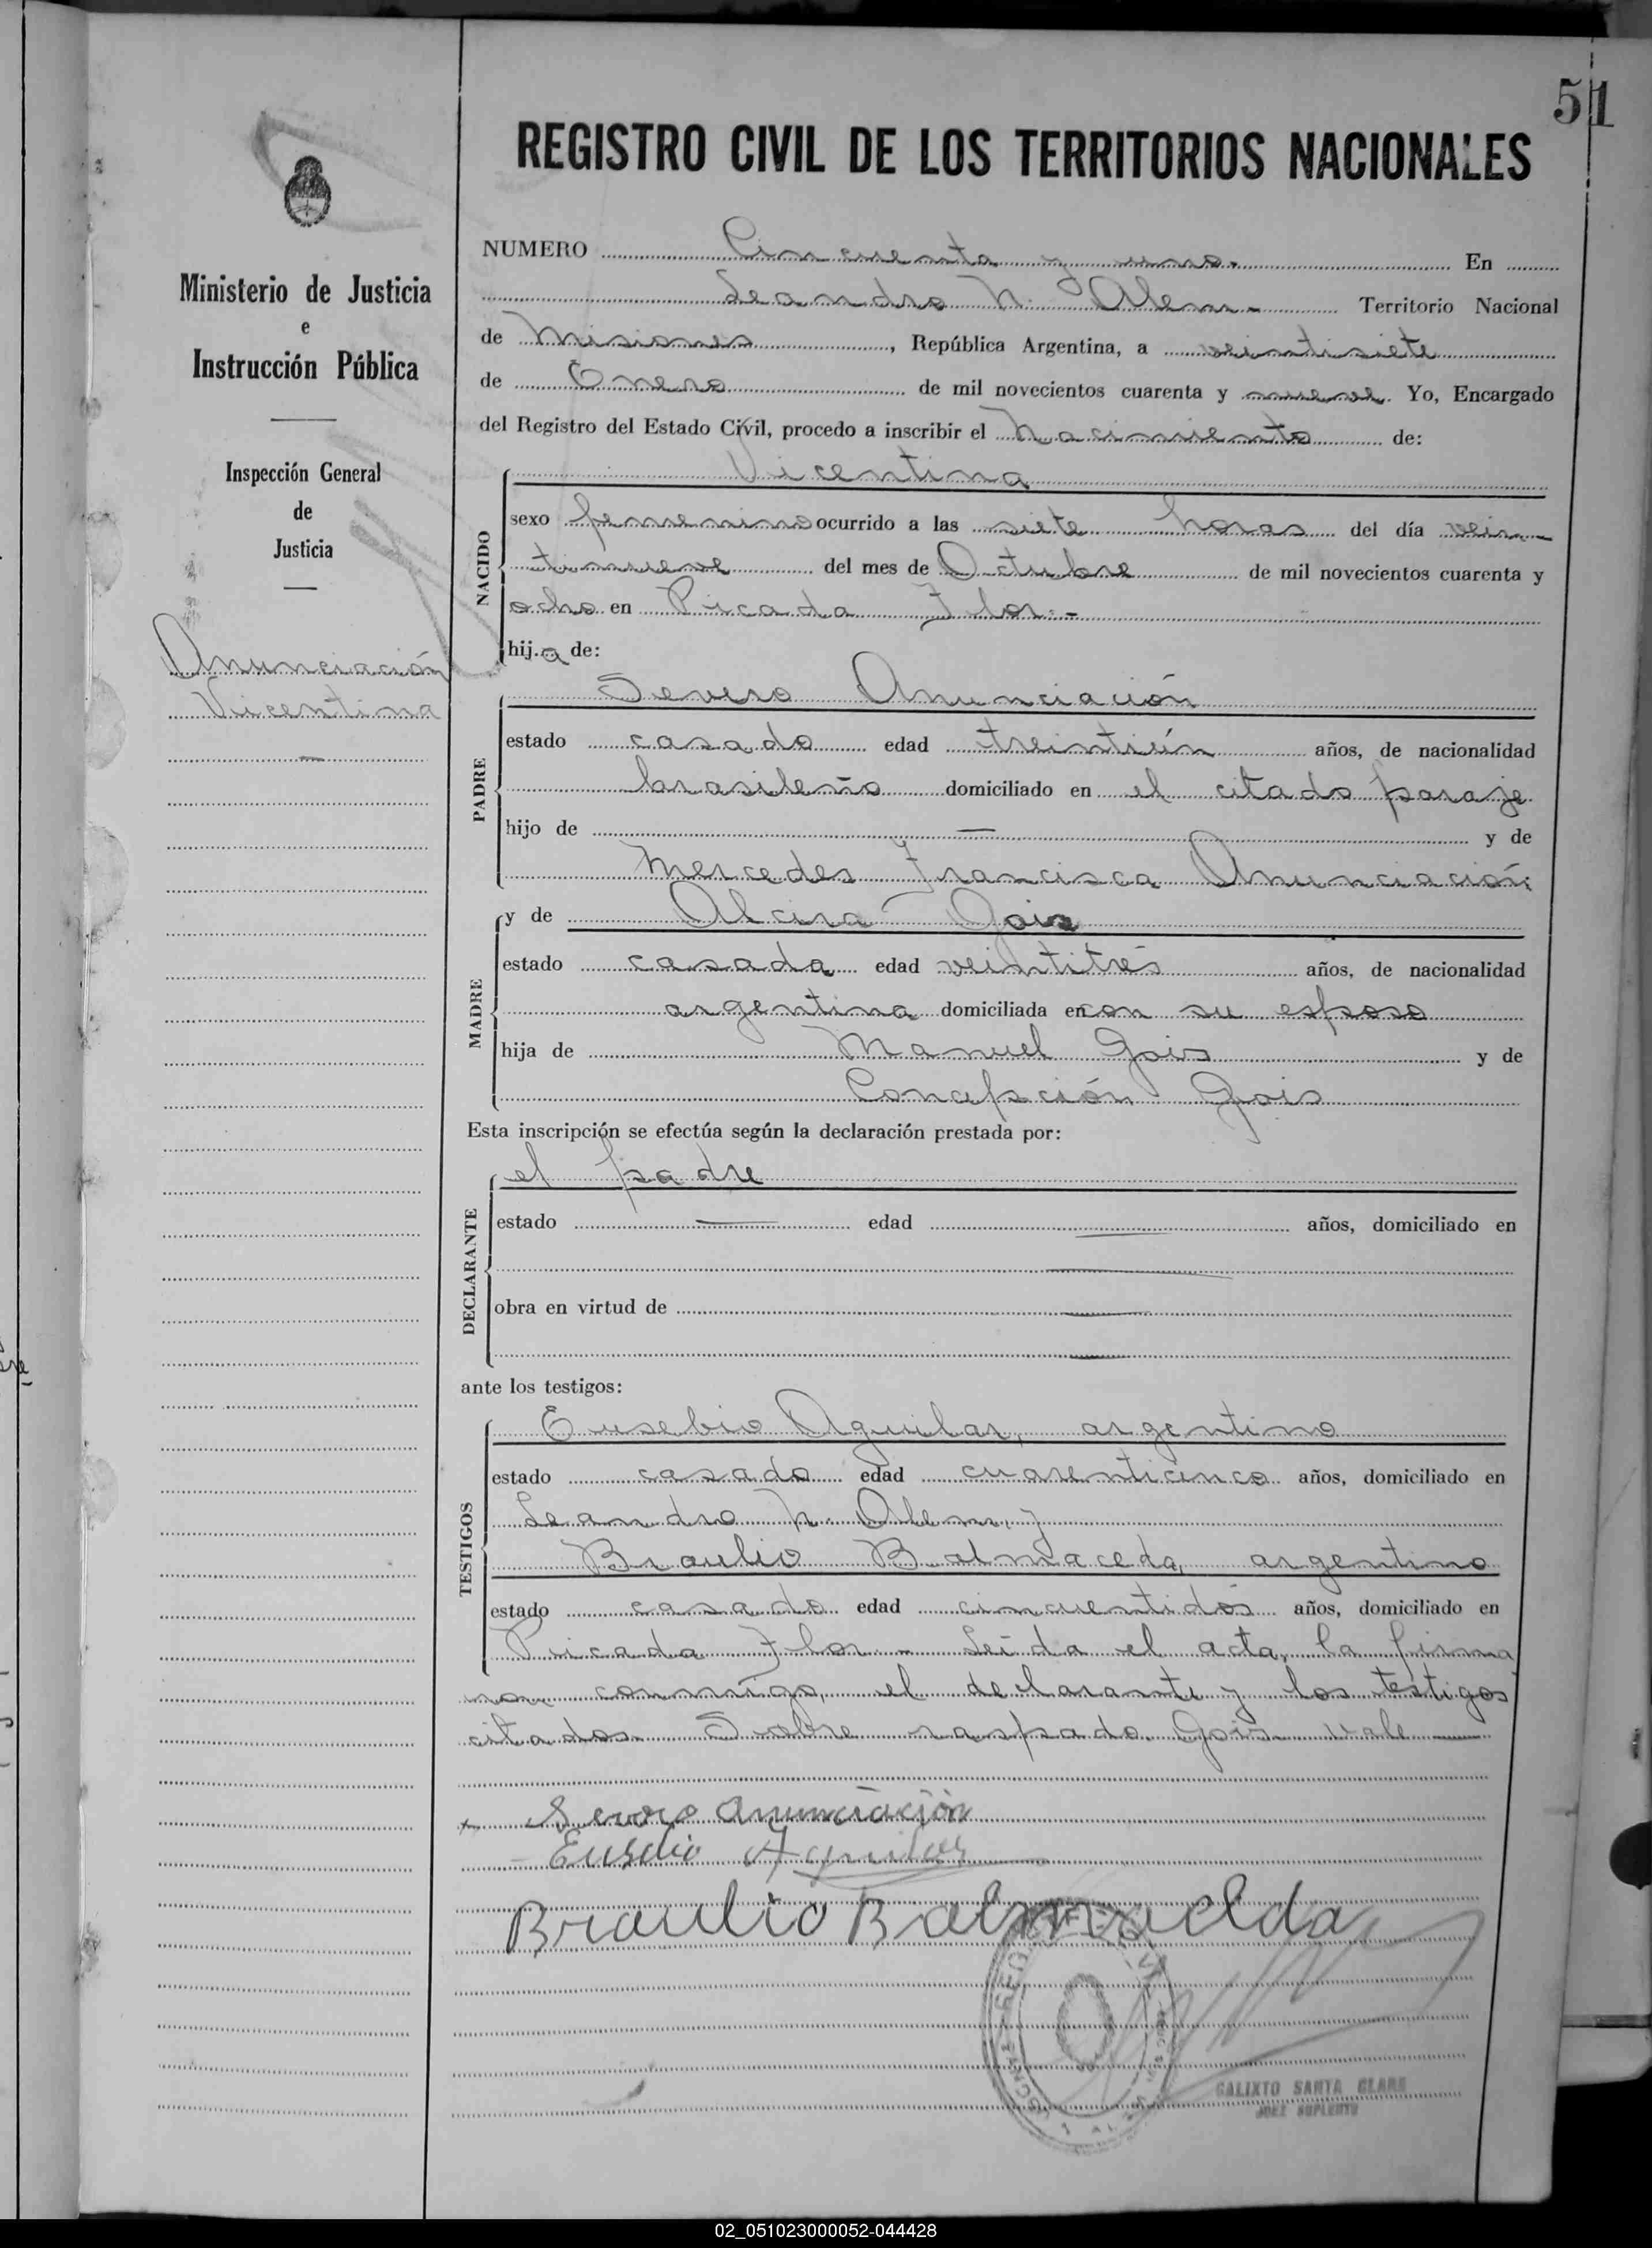 51
REGISTRO CIVIL DE LOS TERRITORIOS NACIONALES
Ministerio de Justicia
e
Instrucción Pública
Inspección General
de
Justicia
Anunciación
Vicentina
NUMERO Cincuenta y uno. En
Leandro N. Alem - Territorio Nacional
de Misiones, República Argentina, a veintisiete
de Enero de mil novecientos cuarenta y nueve. Yo, Encargado
del Registro del Estado Civil, procedo a inscribir el Nacimiento de:
NACIDO
Vicentina
sexo femenino ocurrido a las siete horas del día vein-
tinueve del mes de Octubre de mil novecientos cuarenta y
ocho en Picada Flor.-
hija de:
PADRE
Severo Anunciación
estado casado edad treintiún años, de nacionalidad
brasileño domiciliado en el citado paraje
hijo de — y de
Mercedes Francisca Anunciación
MADRE
y de Alcira Gois
estado casada edad veintitrés años, de nacionalidad
argentina domiciliada en con su esposo
hija de Manuel Gois y de
Concepción Gois
Esta inscripción se efectúa según la declaración prestada por:
DECLARANTE
el padre
estado — edad — años, domiciliado en
—
obra en virtud de —
—
ante los testigos:
TESTIGOS
Eusebio Aguilar, argentino
estado casado edad cuarenticinco años, domiciliado en
Leandro N. Alem, y
Braulio Balmaceda, argentino
estado casado edad cincuentidós años, domiciliado en
Picada Flor - Leída el acta, la firma
ron conmigo, el declarante y los testigos
citados. Sobre raspado. Gois vale —
Severo Anunciación
Eusebio Aguilar
Braulio Balmacelda
CALIXTO SANTA CLARA
JUEZ SUPLENTE
02_051023000052-044428